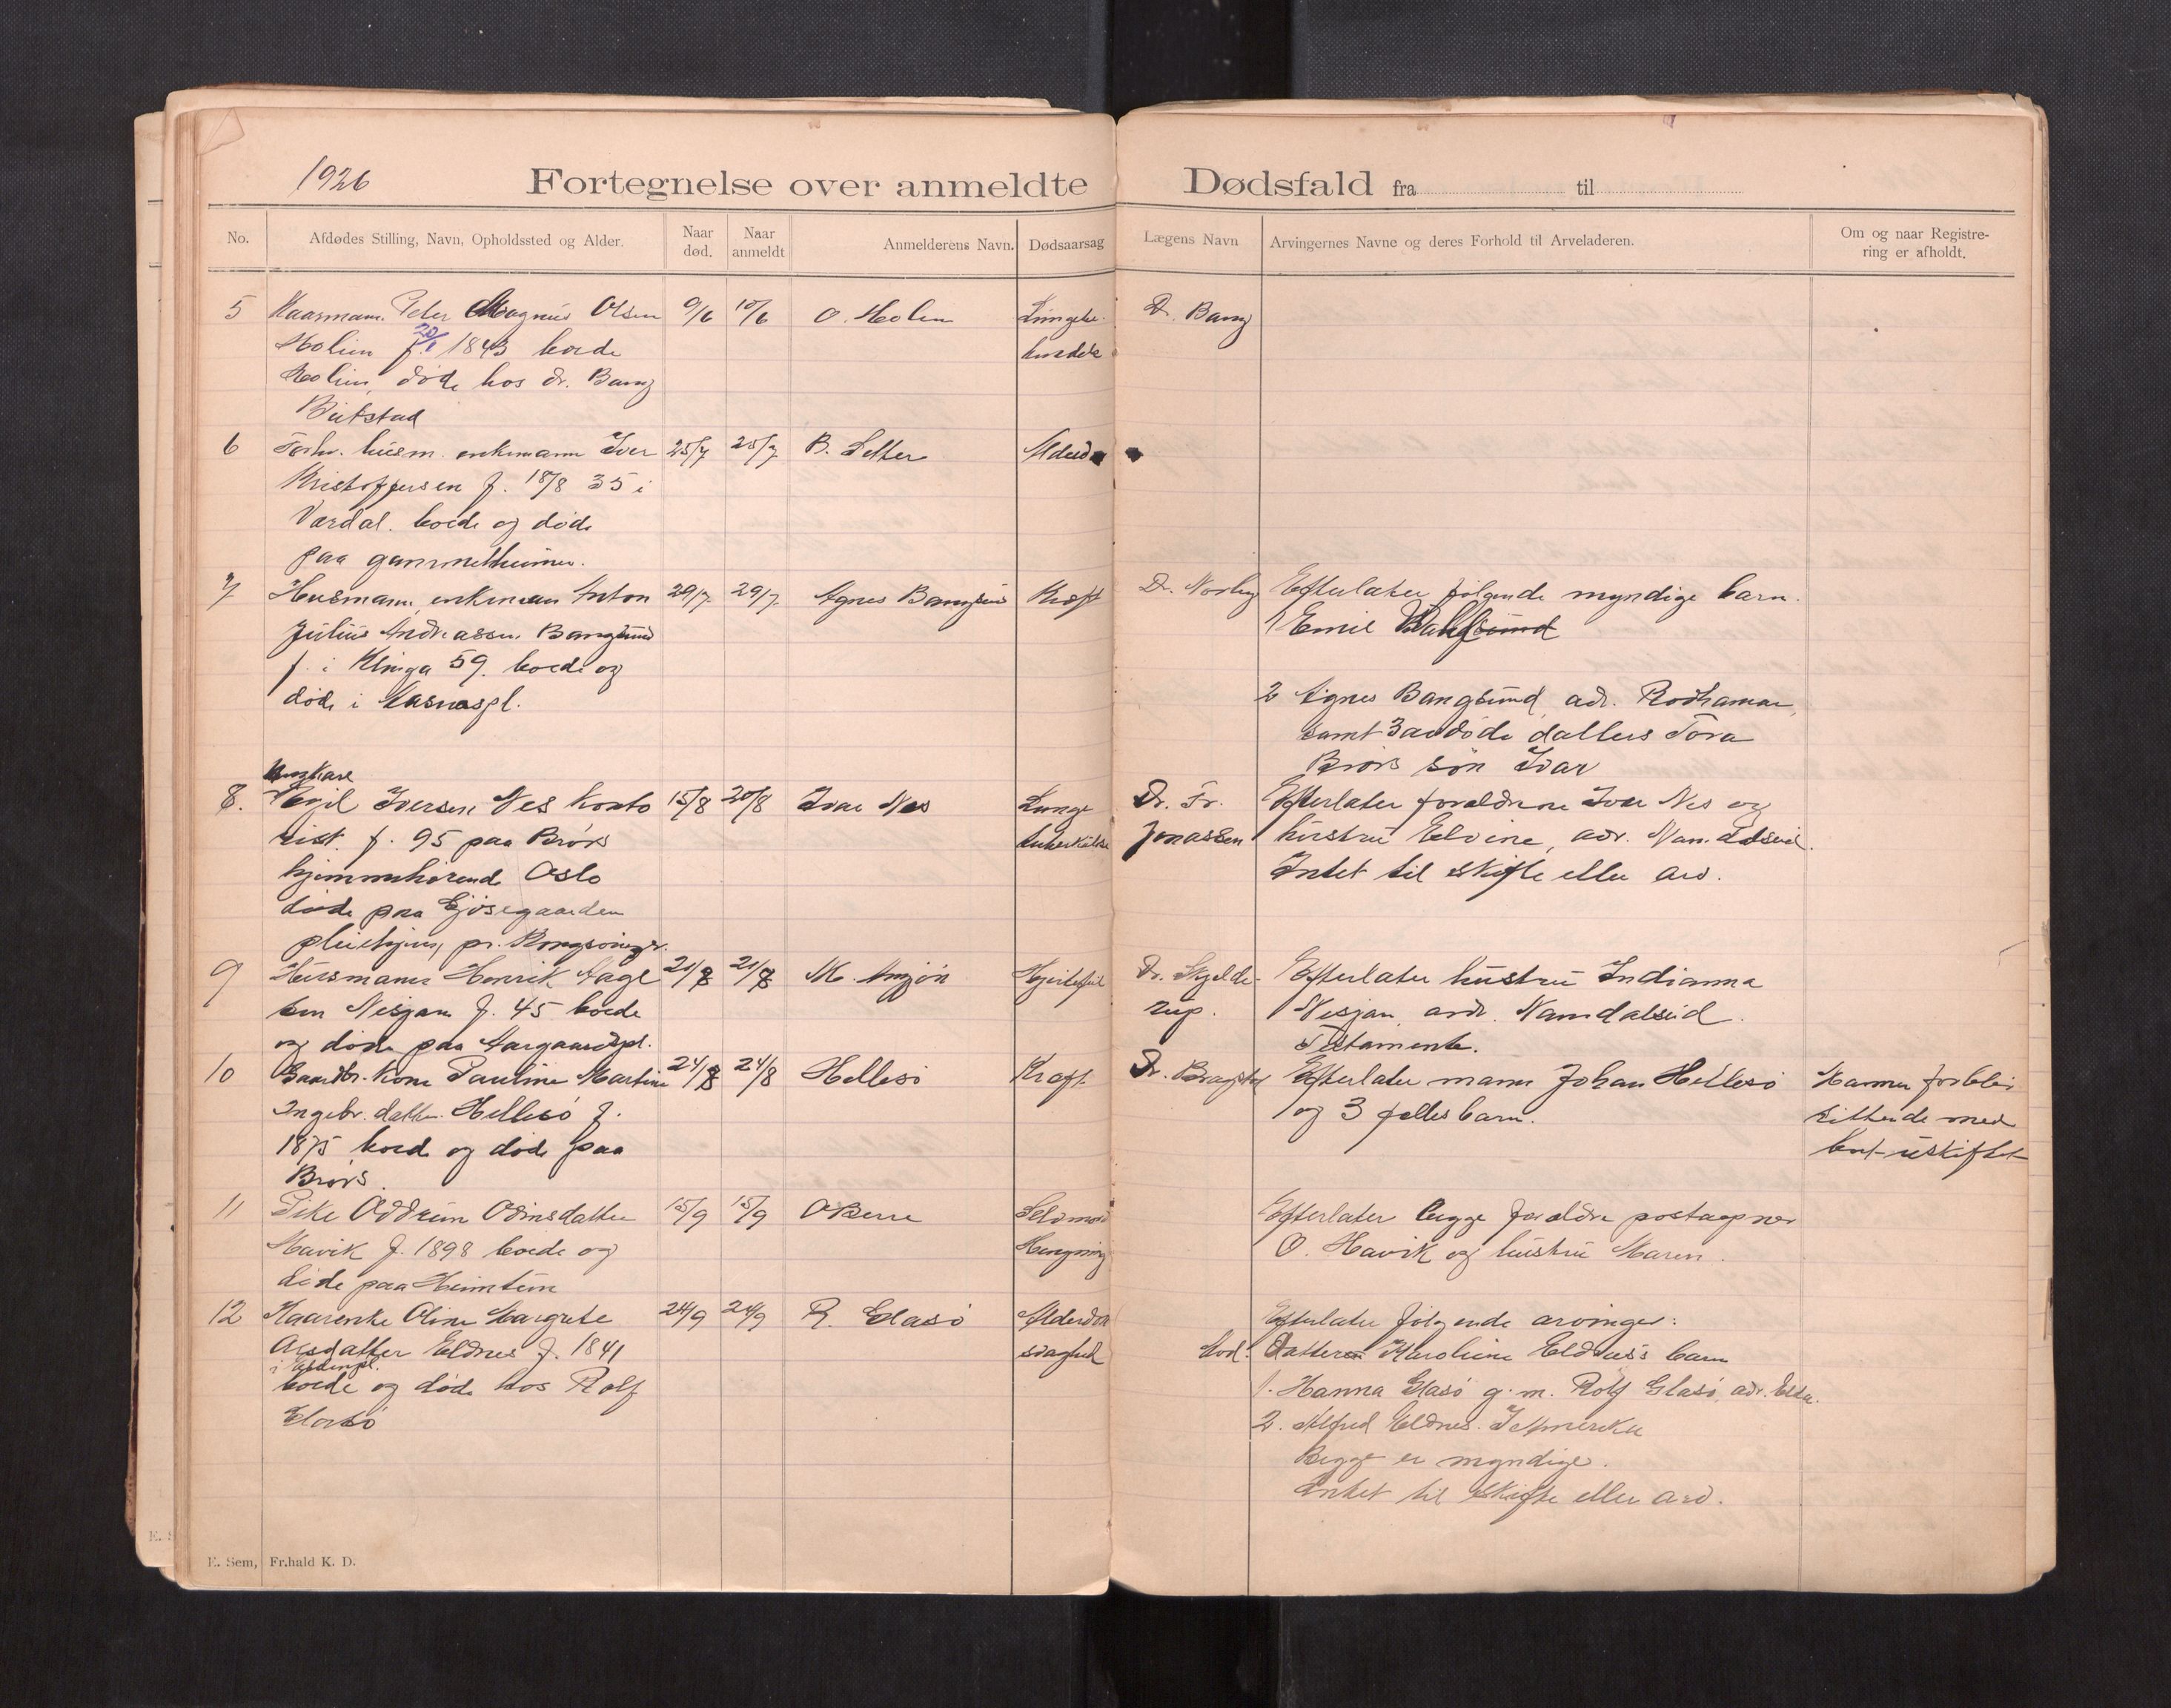 1926
Fortegnelse over anmeldte Dødsfald fra til
No.
Afdødes Stilling, Navn, Opholdssted og Alder.
Naar død.
Naar anmeldt
Anmelderens Navn.
Dødsaarsag
Lægens Navn
Arvingernes Navne og deres Forhold til Arveladeren.
Om og naar Registrering er afholdt.
5 Peter Magnus Olsen 9/6 10/6 O. Holien Dr. Bang
Holien f. 20/1 1843 boede
Holien, døde hos dr. Bang
6 Forhv. husm. enkemann Iver 25/7 25/7 B. Selter
Kristoffersen f. 18/8 35 i
Værdal. boede og døde
paa gammelheimen.
7 Husmann, enkemann Anton 29/7 29/7 Agnes Bangsund Kræft Dr. Norby Efterlater følgende myndige barn.
Julius Andreassen Bangsund 1 Emil Bangsund
f. i Klinga 59. boede og
døde i pl. 2 Agnes Bangsund, adr. Rødhamar,
samt 3 avdøde datters Tora
Brørs søn Ivar
Ungkarl
8. Egil Iversen Nes konto 15/8 20/8 Ivar Nes Lunge Dr. Fr. Efterlater forældrene Ivar Nes og
rist. f. 95 paa Brørs tuberkulose Jonassen hustru Elvine, adr. Namdalseid.
hjemmehørende Oslo Intet til skifte eller arv.
døde paa Gjøsegaarden
pleiehjem, pr. Kongsvinger.
9 Husmann Henrik Aage 21/8 21/8 M. Hjertefeil Dr. Skjelde- Efterlater hustru Indianna
sen Nesjan f. 45 boede rup. Nesjan, adr. Namdalseid.
og døde paa Aargaardspl. Testamente.
10 Gaardbr. kone Pauline Martine 24/8 24/8 Hellesø Kræft Efterlater mann Johan Hellesø Mannen forblir
Ingebr. datter Hellesø f. og 3 fælles barn. sittende med
1875 boede og døde paa boet uskiftet
Brørs.
11 Pike Oddrun Odinsdatter 15/9 15/9 O Berre Selvmord Efterlater begge forældre postaapner
Havik f. 1898 boede og Hengning O. Havik og hustru Maren.
døde paa Heimtun
12 Kaarenke Oline Margrete 24/9 24/9 R. Elasø Alderdom Efterlater følgende arvinger:
Eldnes f. 1841 svaghed Avd. Datteren Karoline Eldnes's barn
boede og døde hos Rolf 1. Hanna Elasø g. m. Rolf Glasø, adr.
Elasø 2. Alfred Eldnes. I Amerika
Begge er myndige.
Intet til skifte eller arv.
E. Sem, Fr.hald K. D.